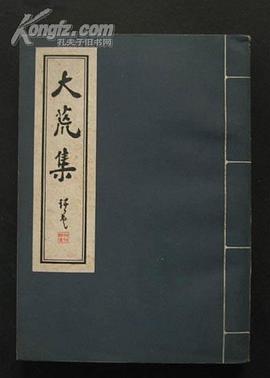 Kongfz.com
孔夫子旧书网
大荒集